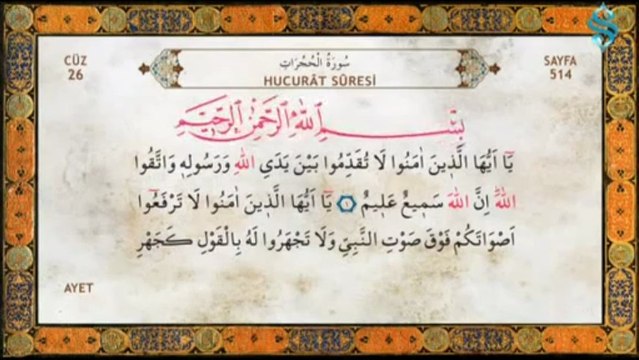 CÜZ
26
سُورَةُ الْحُجُرَاتِ
HUCURÂT SÛRESİ
SAYFA
514
بِسْمِ اللهِ الرَّحْمٰنِ الرَّحِيمِ
يَٓا اَيُّهَا الَّذ۪ينَ اٰمَنُوا لَا تُقَدِّمُوا بَيْنَ يَدَيِ اللهِ وَرَسُولِه۪ وَاتَّقُوا
اللهَۜ اِنَّ اللهَ سَم۪يعٌ عَل۪يمٌ ﴿١﴾ يَٓا اَيُّهَا الَّذ۪ينَ اٰمَنُوا لَا تَرْفَعُٓوا
اَصْوَاتَكُمْ فَوْقَ صَوْتِ النَّبِيِّ وَلَا تَجْهَرُوا لَهُ بِالْقَوْلِ كَجَهْرِ
AYET